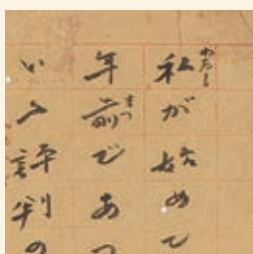 私が始めて
年前であつ
いふ評判の